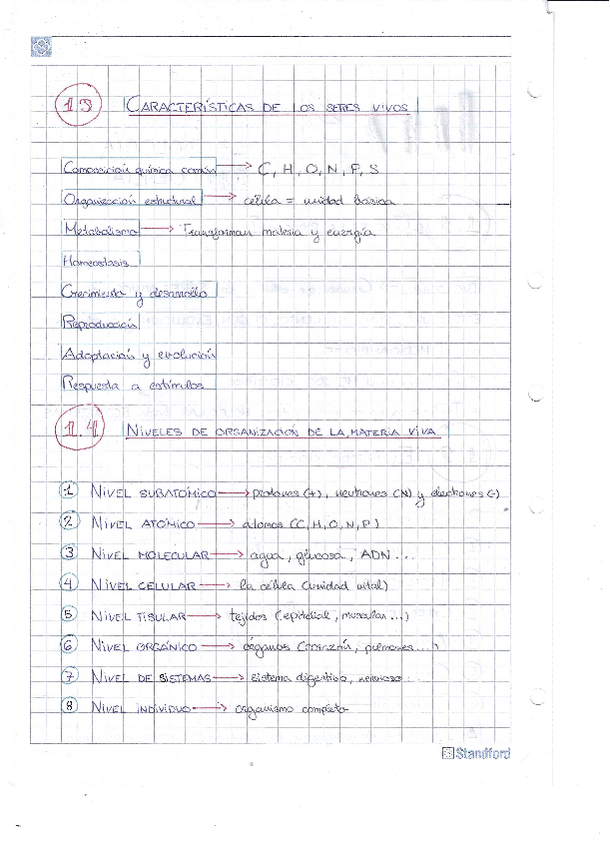 1.3 CARACTERÍSTICAS DE LOS SERES VIVOS
Composición química común → C, H, O, N, P, S
Organización estructural → célula = unidad básica
Metabolismo → Transforman materia y energía
Homeostasis
Crecimiento y desarrollo
Reproducción
Adaptación y evolución
Respuesta a estímulos
1.4 NIVELES DE ORGANIZACIÓN DE LA MATERIA VIVA
1 NIVEL SUBATÓMICO → protones (+), neutrones (N) y electrones (-)
2 NIVEL ATÓMICO → átomos (C, H, O, N, P)
3 NIVEL MOLECULAR → agua, glucosa, ADN...
4 NIVEL CELULAR → la célula (unidad vital)
5 NIVEL TISULAR → tejidos (epitelial, muscular...)
6 NIVEL ORGÁNICO → órganos (corazón, pulmones...)
7 NIVEL DE SISTEMAS → sistema digestivo, nervioso...
8 NIVEL INDIVIDUO → organismo completo
Standford